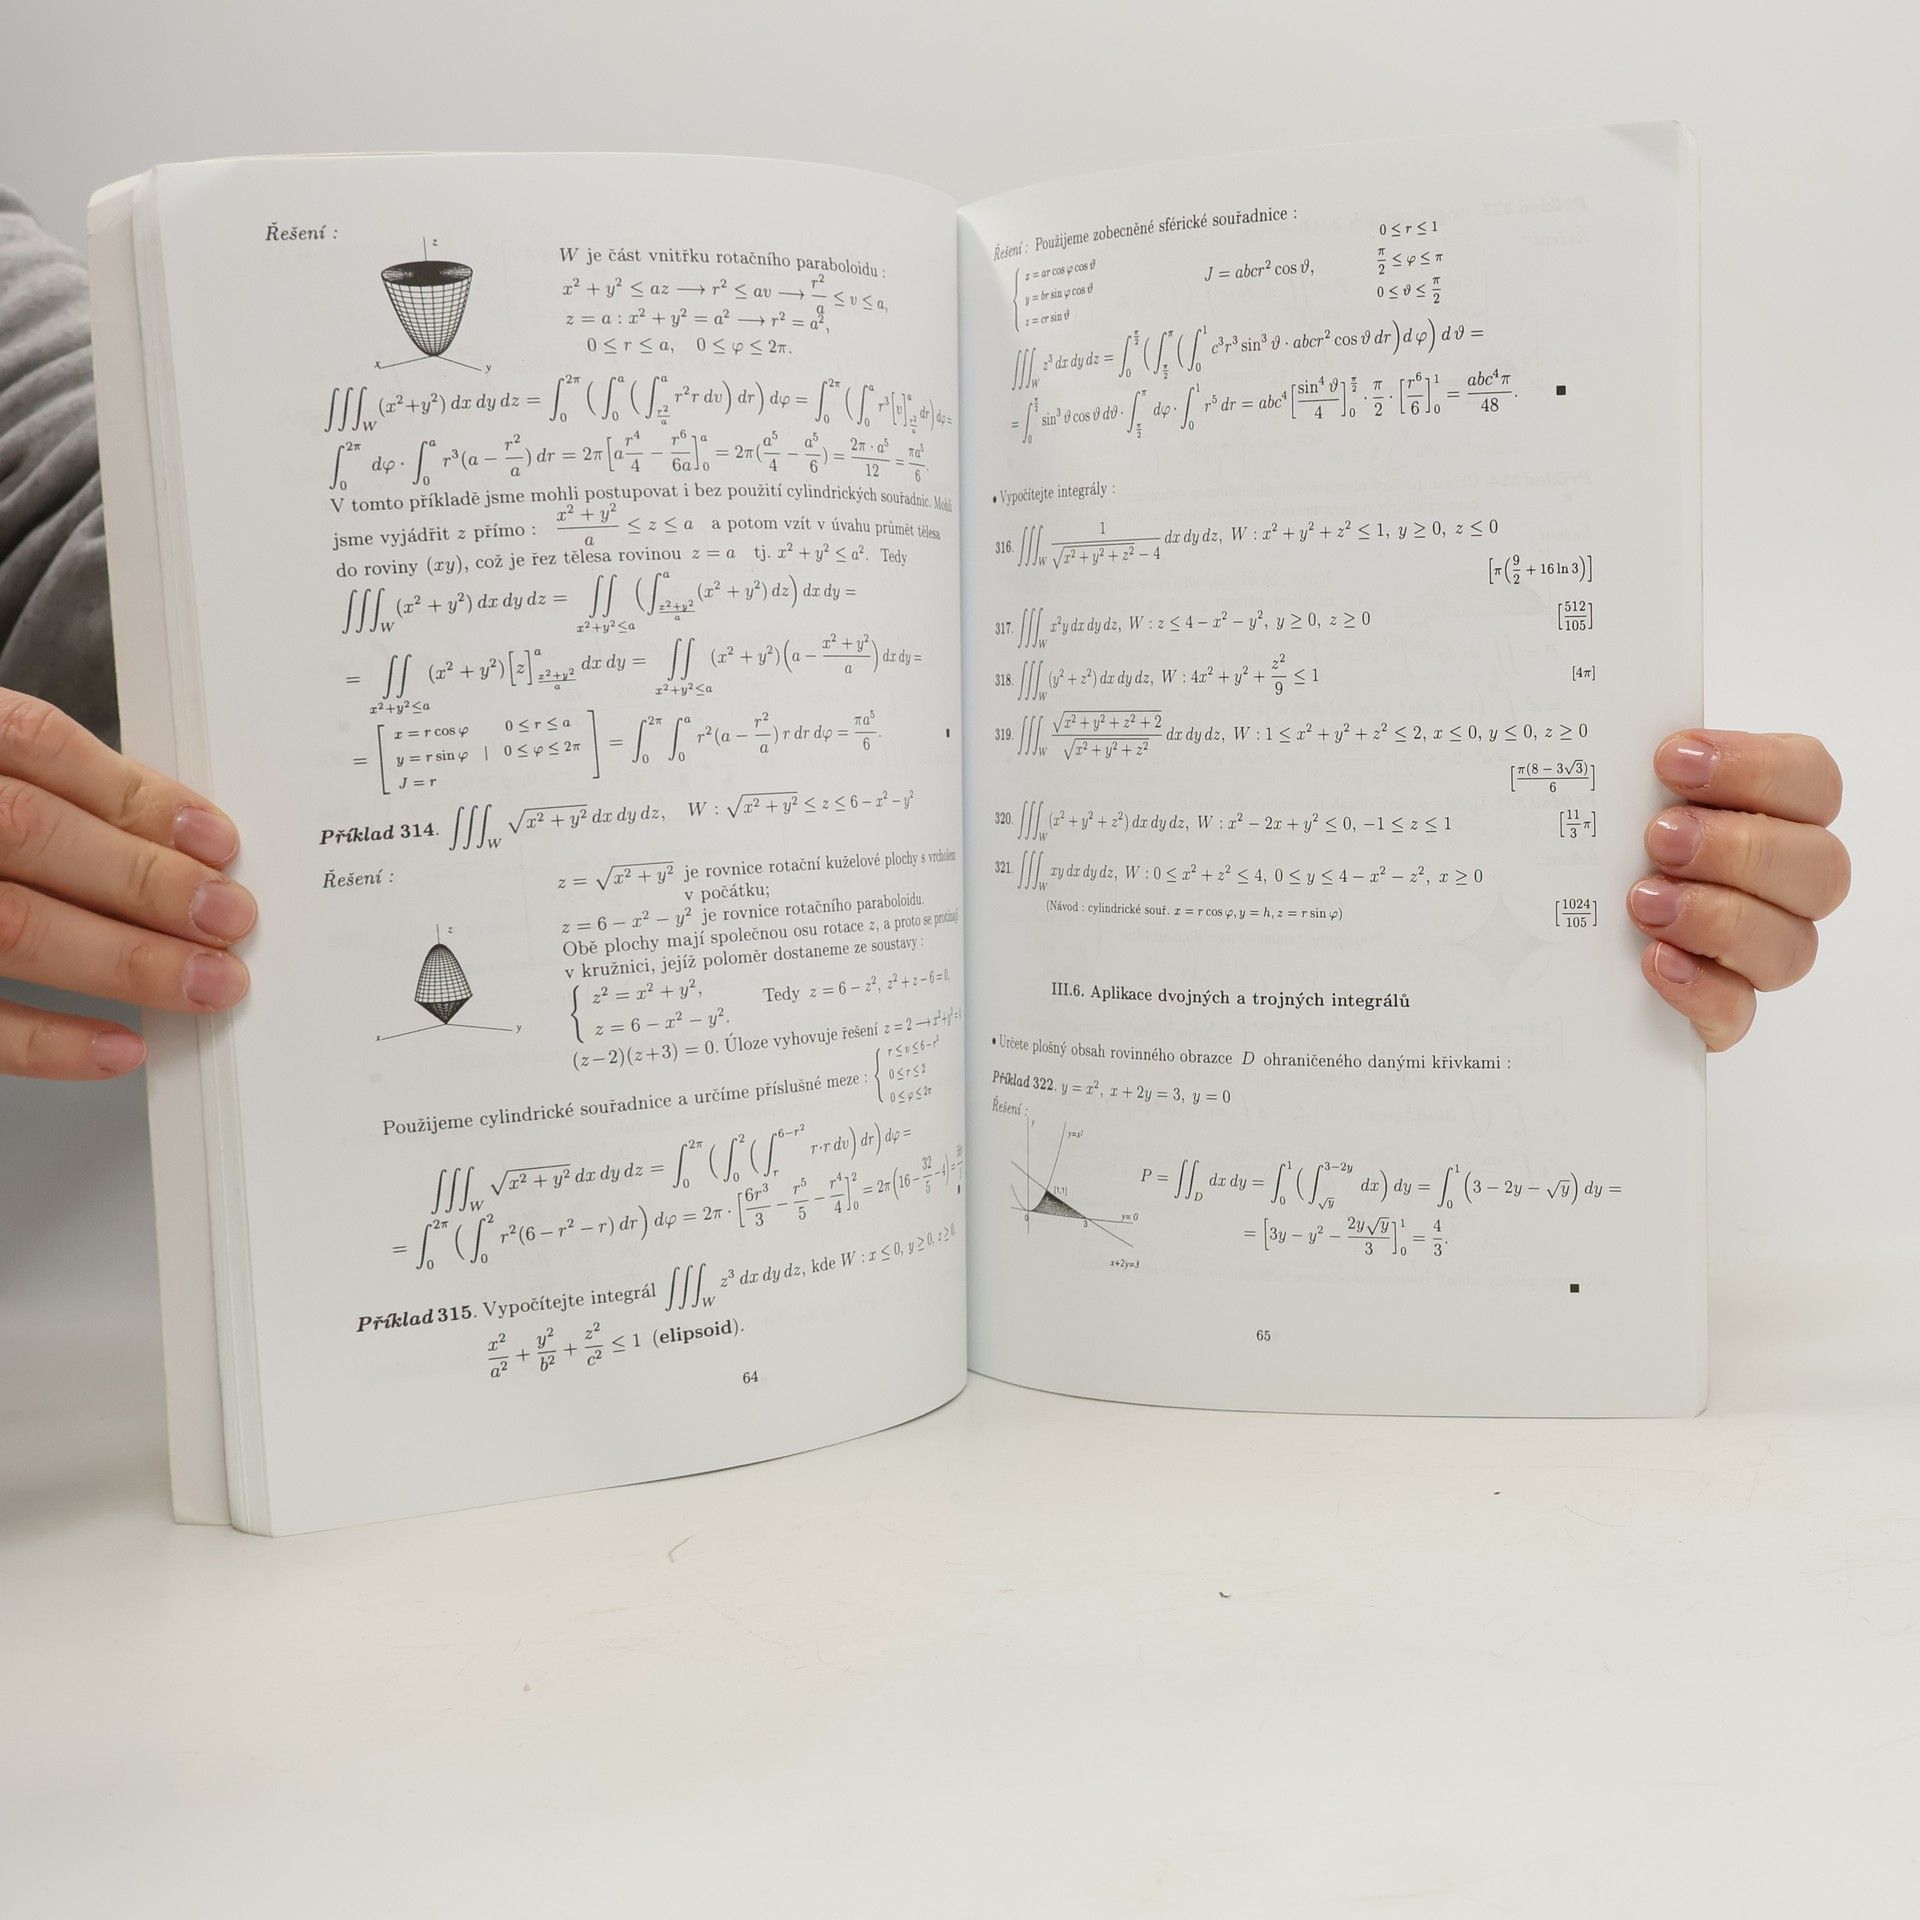 Řešení :
z
x
y
W je část vnitřku rotačního paraboloidu :
x² + y² ≤ az ⟶ r² ≤ av ⟶ r²/a ≤ v ≤ a,
z = a : x² + y² = a² ⟶ r² = a²,
0 ≤ r ≤ a, 0 ≤ φ ≤ 2π.
∭_W (x²+y²) dx dy dz = ∫_0^{2π} (∫_0^a (∫_{r²/a}^a r²r dv) dr) dφ = ∫_0^{2π} (∫_0^a r³[v]_{r²/a}^a dr) dφ =
∫_0^{2π} dφ · ∫_0^a r³(a − r²/a) dr = 2π[a r⁴/4 − r⁶/6a]_0^a = 2π(a⁵/4 − a⁵/6) = 2π·a⁵/12 = πa⁵/6.
V tomto příkladě jsme mohli postupovat i bez použití cylindrických souřadnic. Mohli
jsme vyjádřit z přímo : (x² + y²)/a ≤ z ≤ a a potom vzít v úvahu průmět tělesa
do roviny (xy), což je řez tělesa rovinou z = a tj. x² + y² ≤ a². Tedy
∭_W (x² + y²) dx dy dz = ∬_{x²+y²≤a} (∫_{(x²+y²)/a}^a (x² + y²) dz) dx dy =
= ∬_{x²+y²≤a} (x² + y²)[z]_{(x²+y²)/a}^a dx dy = ∬_{x²+y²≤a} (x² + y²)(a − (x² + y²)/a) dx dy =
= [x = r cos φ 0 ≤ r ≤ a
y = r sin φ | 0 ≤ φ ≤ 2π
J = r] = ∫_0^{2π} ∫_0^a r²(a − r²/a) r dr dφ = πa⁵/6.
Příklad 314. ∭_W √(x² + y²) dx dy dz, W : √(x² + y²) ≤ z ≤ 6 − x² − y²
Řešení :
z = √(x² + y²) je rovnice rotační kuželové plochy s vrcholem
v počátku;
z = 6 − x² − y² je rovnice rotačního paraboloidu.
Obě plochy mají společnou osu rotace z, a proto se protínají
v kružnici, jejíž poloměr dostaneme ze soustavy :
z
x
y
{ z² = x² + y²,
z = 6 − x² − y². Tedy z = 6 − z², z² + z − 6 = 0,
(z−2)(z+3) = 0. Úloze vyhovuje řešení z = 2 ⟶ x²+y² = 4
Použijeme cylindrické souřadnice a určíme příslušné meze : { r ≤ v ≤ 6−r²
0 ≤ r ≤ 2
0 ≤ φ ≤ 2π
∭_W √(x² + y²) dx dy dz = ∫_0^{2π} (∫_0^2 (∫_r^{6−r²} r·r dv) dr) dφ =
= ∫_0^{2π} (∫_0^2 r²(6 − r² − r) dr) dφ = 2π · [6r³/3 − r⁵/5 − r⁴/4]_0^2 = 2π(16 − 32/5 − 4) =
Příklad 315. Vypočítejte integrál ∭_W z³ dx dy dz, kde W : x ≤ 0, y ≥ 0, z ≥ 0,
x²/a² + y²/b² + z²/c² ≤ 1 (elipsoid).
64
Řešení : Použijeme zobecněné sférické souřadnice :
{ x = ar cos φ cos ϑ
y = br sin φ cos ϑ
z = cr sin ϑ
J = abcr² cos ϑ,
0 ≤ r ≤ 1
π/2 ≤ φ ≤ π
0 ≤ ϑ ≤ π/2
∭_W z³ dx dy dz = ∫_0^{π/2} (∫_{π/2}^π (∫_0^1 c³r³ sin³ ϑ · abcr² cos ϑ dr) dφ) dϑ =
= ∫_0^{π/2} sin³ ϑ cos ϑ dϑ · ∫_{π/2}^π dφ · ∫_0^1 r⁵ dr = abc⁴ [sin⁴ ϑ/4]_0^{π/2} · π/2 · [r⁶/6]_0^1 = abc⁴π/48.
• Vypočítejte integrály :
316. ∭_W 1/(√(x² + y² + z²) − 4) dx dy dz, W : x² + y² + z² ≤ 1, y ≥ 0, z ≤ 0
[π(9/2 + 16 ln 3)]
317. ∭_W x²y dx dy dz, W : z ≤ 4 − x² − y², y ≥ 0, z ≥ 0 [512/105]
318. ∭_W (y² + z²) dx dy dz, W : 4x² + y² + z²/9 ≤ 1 [4π]
319. ∭_W √(x² + y² + z² + 2)/√(x² + y² + z²) dx dy dz, W : 1 ≤ x² + y² + z² ≤ 2, x ≤ 0, y ≤ 0, z ≥ 0
[π(8 − 3√3)/6]
320. ∭_W (x² + y² + z²) dx dy dz, W : x² − 2x + y² ≤ 0, −1 ≤ z ≤ 1 [11/3 π]
321. ∭_W xy dx dy dz, W : 0 ≤ x² + z² ≤ 4, 0 ≤ y ≤ 4 − x² − z², x ≥ 0
(Návod : cylindrické souř. x = r cos φ, y = h, z = r sin φ) [1024/105]
III.6. Aplikace dvojných a trojných integrálů
• Určete plošný obsah rovinného obrazce D ohraničeného danými křivkami :
Příklad 322. y = x², x + 2y = 3, y = 0
Řešení :
y
y=x²
(1,1)
0
3
y=0
x+2y=3
P = ∬_D dx dy = ∫_0^1 (∫_{√y}^{3−2y} dx) dy = ∫_0^1 (3 − 2y − √y) dy =
= [3y − y² − 2y√y/3]_0^1 = 4/3.
65